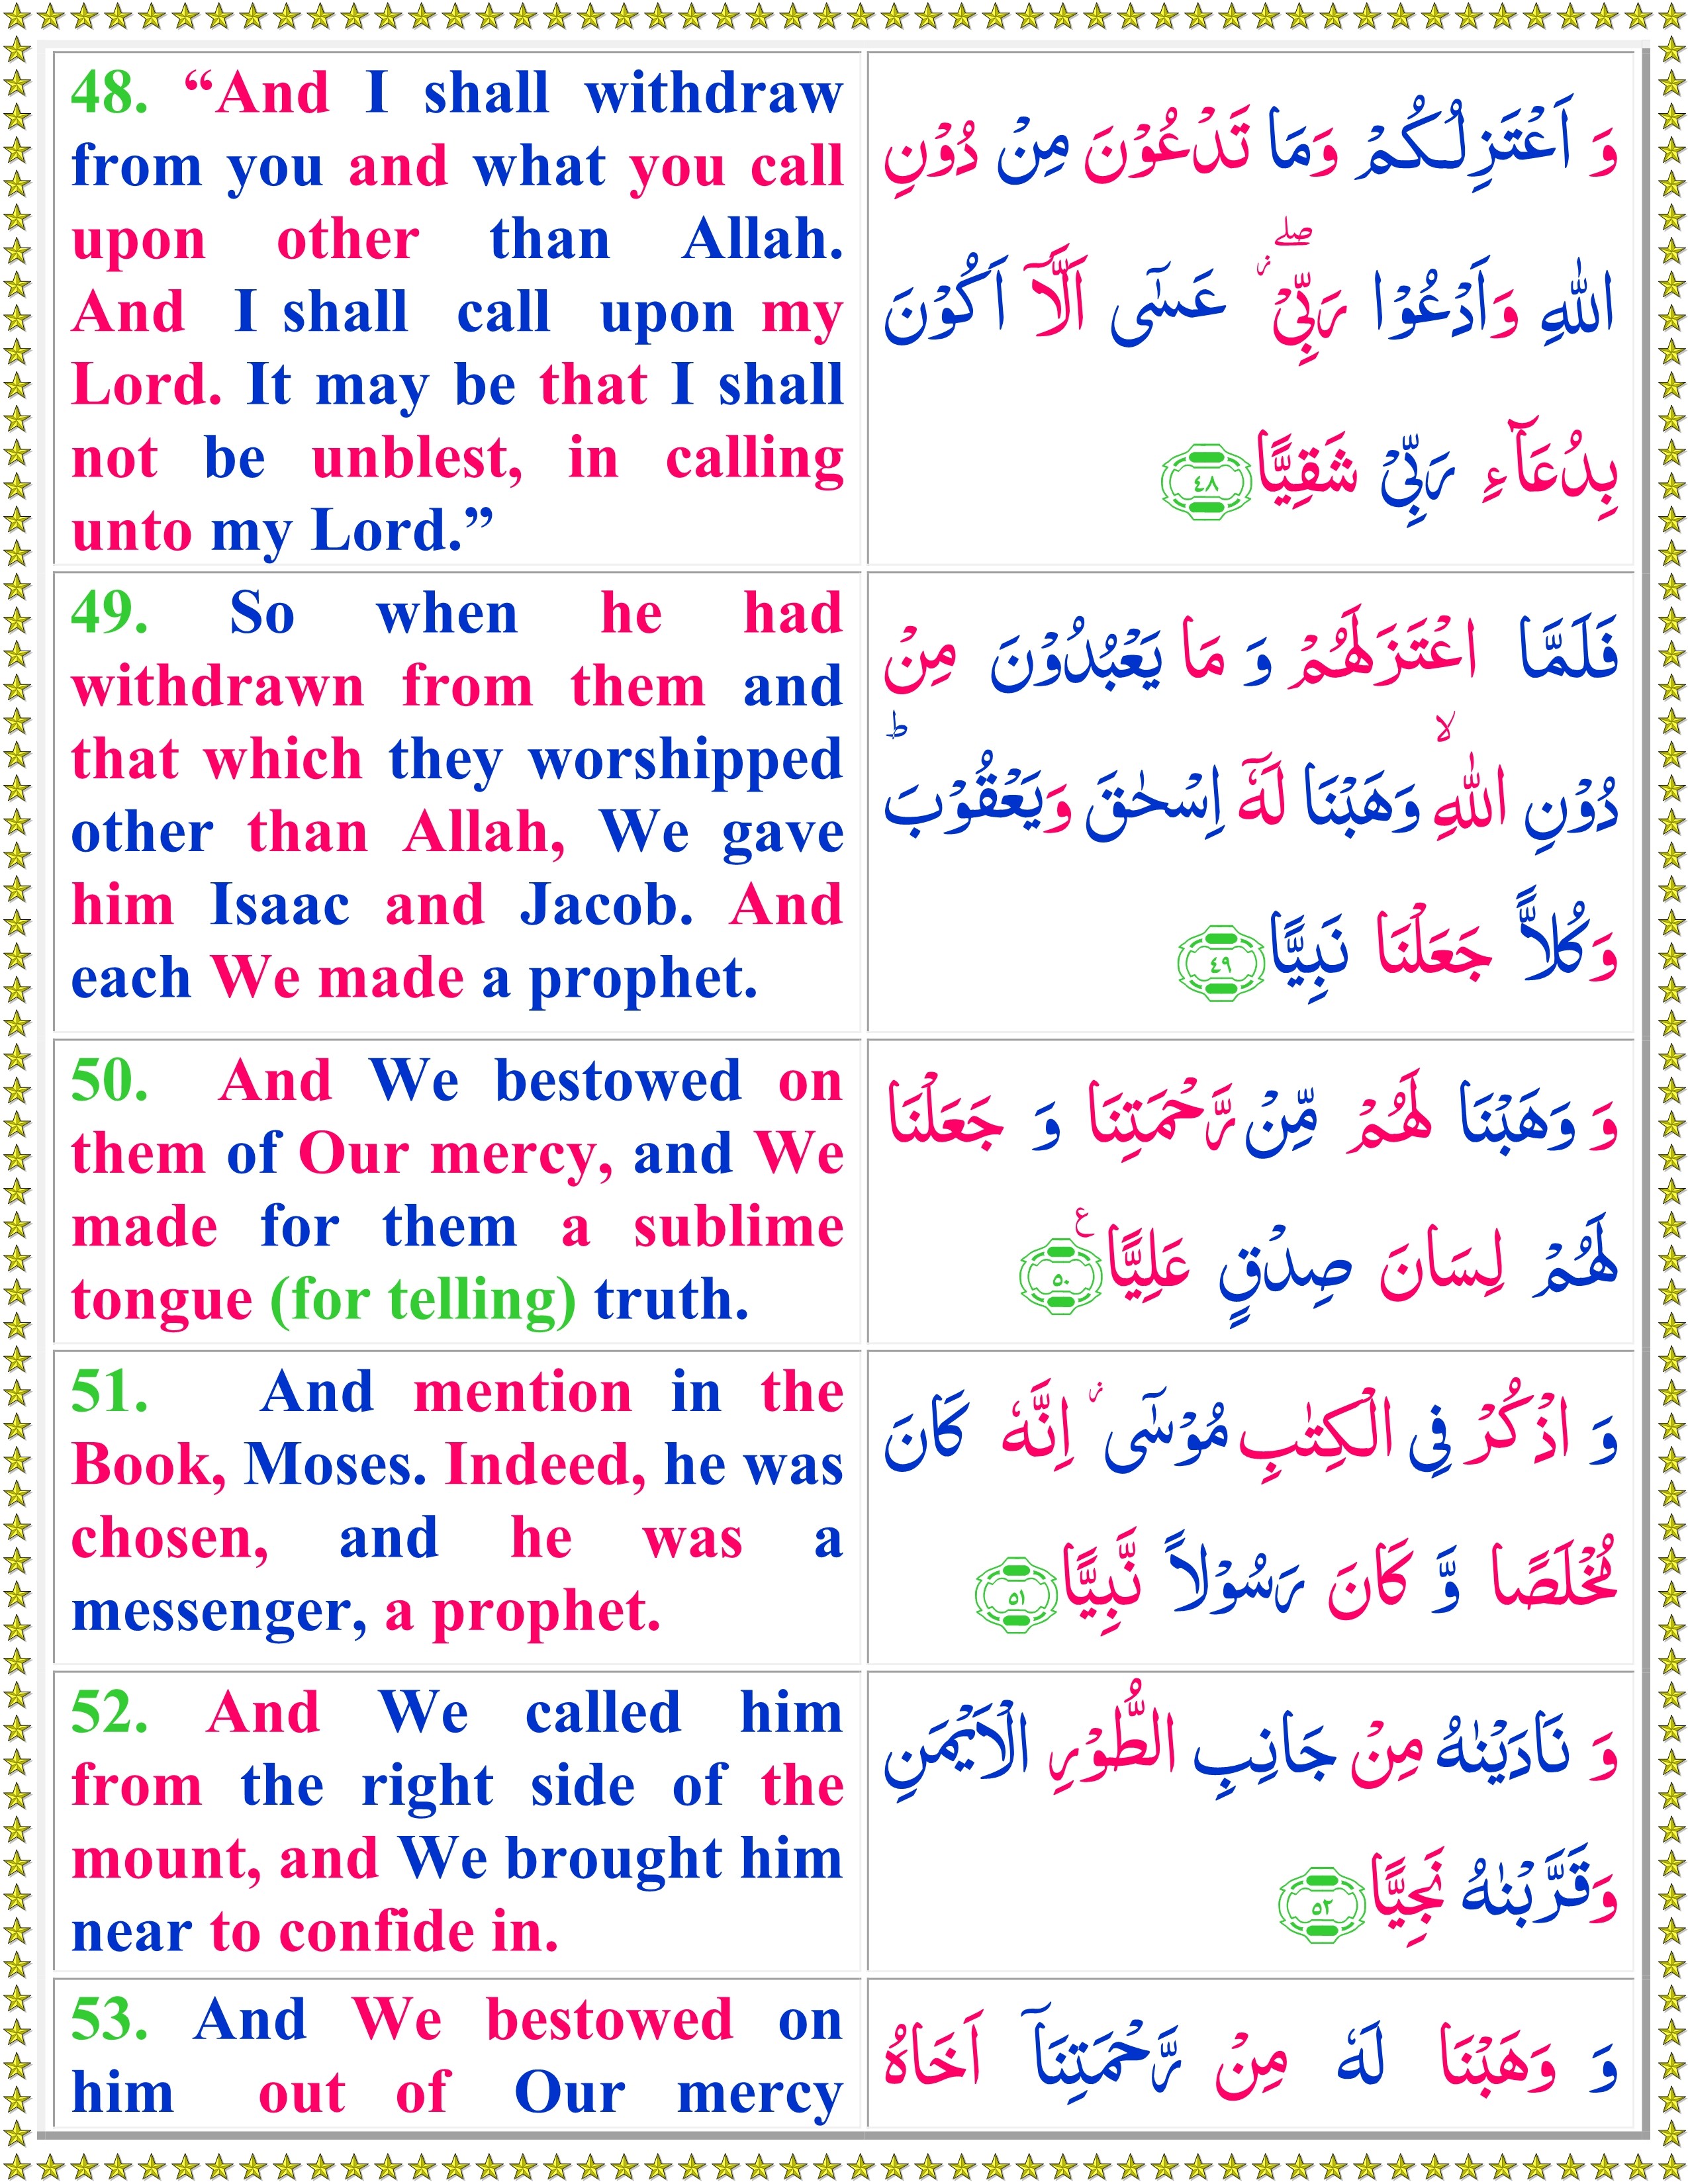 48. “And I shall withdraw
from you and what you call
upon other than Allah.
And I shall call upon my
Lord. It may be that I shall
not be unblest, in calling
unto my Lord.”
وَ اَعْتَزِلُكُمْ وَمَا تَدْعُوْنَ مِنْ دُوْنِ
اللّٰهِ وَاَدْعُوْا رَبِّىْ ۖ ز عَسٰٓى اَلَّاۤ اَكُوْنَ
بِدُعَآءِ رَبِّىْ شَقِيًّا ٤٨
49. So when he had
withdrawn from them and
that which they worshipped
other than Allah, We gave
him Isaac and Jacob. And
each We made a prophet.
فَلَمَّا اعْتَزَلَهُمْ وَ مَا يَعْبُدُوْنَ مِنْ
دُوْنِ اللّٰهِ ۙ وَهَبْنَا لَهٗۤ اِسْحٰقَ وَيَعْقُوْبَ ؕ
وَكُلاًّ جَعَلْنَا نَبِيًّا ٤٩
50. And We bestowed on
them of Our mercy, and We
made for them a sublime
tongue (for telling) truth.
وَ وَهَبْنَا لَهُمْ مِّنْ رَّحْمَتِنَا وَ جَعَلْنَا
لَهُمْ لِسَانَ صِدْقٍ عَلِيًّا ع ٥٠
51. And mention in the
Book, Moses. Indeed, he was
chosen, and he was a
messenger, a prophet.
وَ اذْكُرْ فِى الْكِتٰبِ مُوْسٰٓى ز اِنَّهٗ كَانَ
مُخْلَصًا وَّ كَانَ رَسُوْلاً نَّبِيًّا ٥١
52. And We called him
from the right side of the
mount, and We brought him
near to confide in.
وَ نَادَيْنٰهُ مِنْ جَانِبِ الطُّوْرِ الْاَيْمَنِ
وَقَرَّبْنٰهُ نَجِيًّا ٥٢
53. And We bestowed on
him out of Our mercy
وَ وَهَبْنَا لَهٗ مِنْ رَّحْمَتِنَاۤ اَخَاهُ